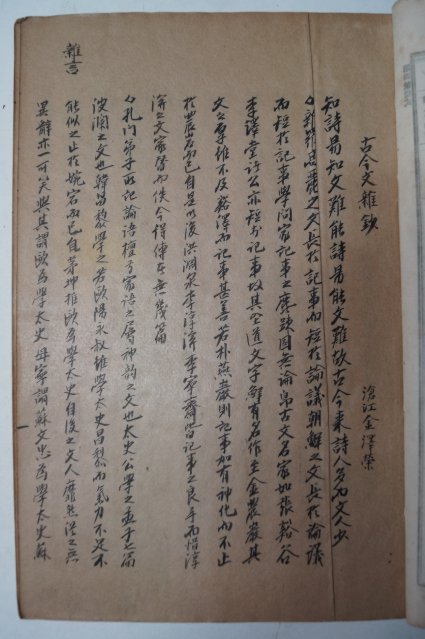 古今文雜鈔
滄江金澤榮
雜言
知詩易知文難能詩易能文難故古今東詩人多而文人少
麗之文長於記事而短於論議朝鮮之文長於論議
而短於記事學問家記事之固無論古文名家如張谿谷
李澤堂諸公亦短於記事故其文字鮮有名作至金農巖其
文之厚雖不及谿澤而記事甚善若朴燕巖則記事加有神化而不止
於農岩而已自是以後洪淵泉李李寧齋皆記事之良手而惜淳
之文家替而佚今得傳世無幾篇
孔門弟子所記論語檀弓家語之屬神韵之文也太史公學之孟子之篇
波瀾之文也韓昌黎學之若歐陽永叔雖學太史昌黎而氣力不足不
能似之止於婉宕而已自茅坤推歐爲學太史自後之文人靡然從之無
異辭亦一可笑與其謂歐爲學太史毋寧謂蘇文忠爲學太史蘇